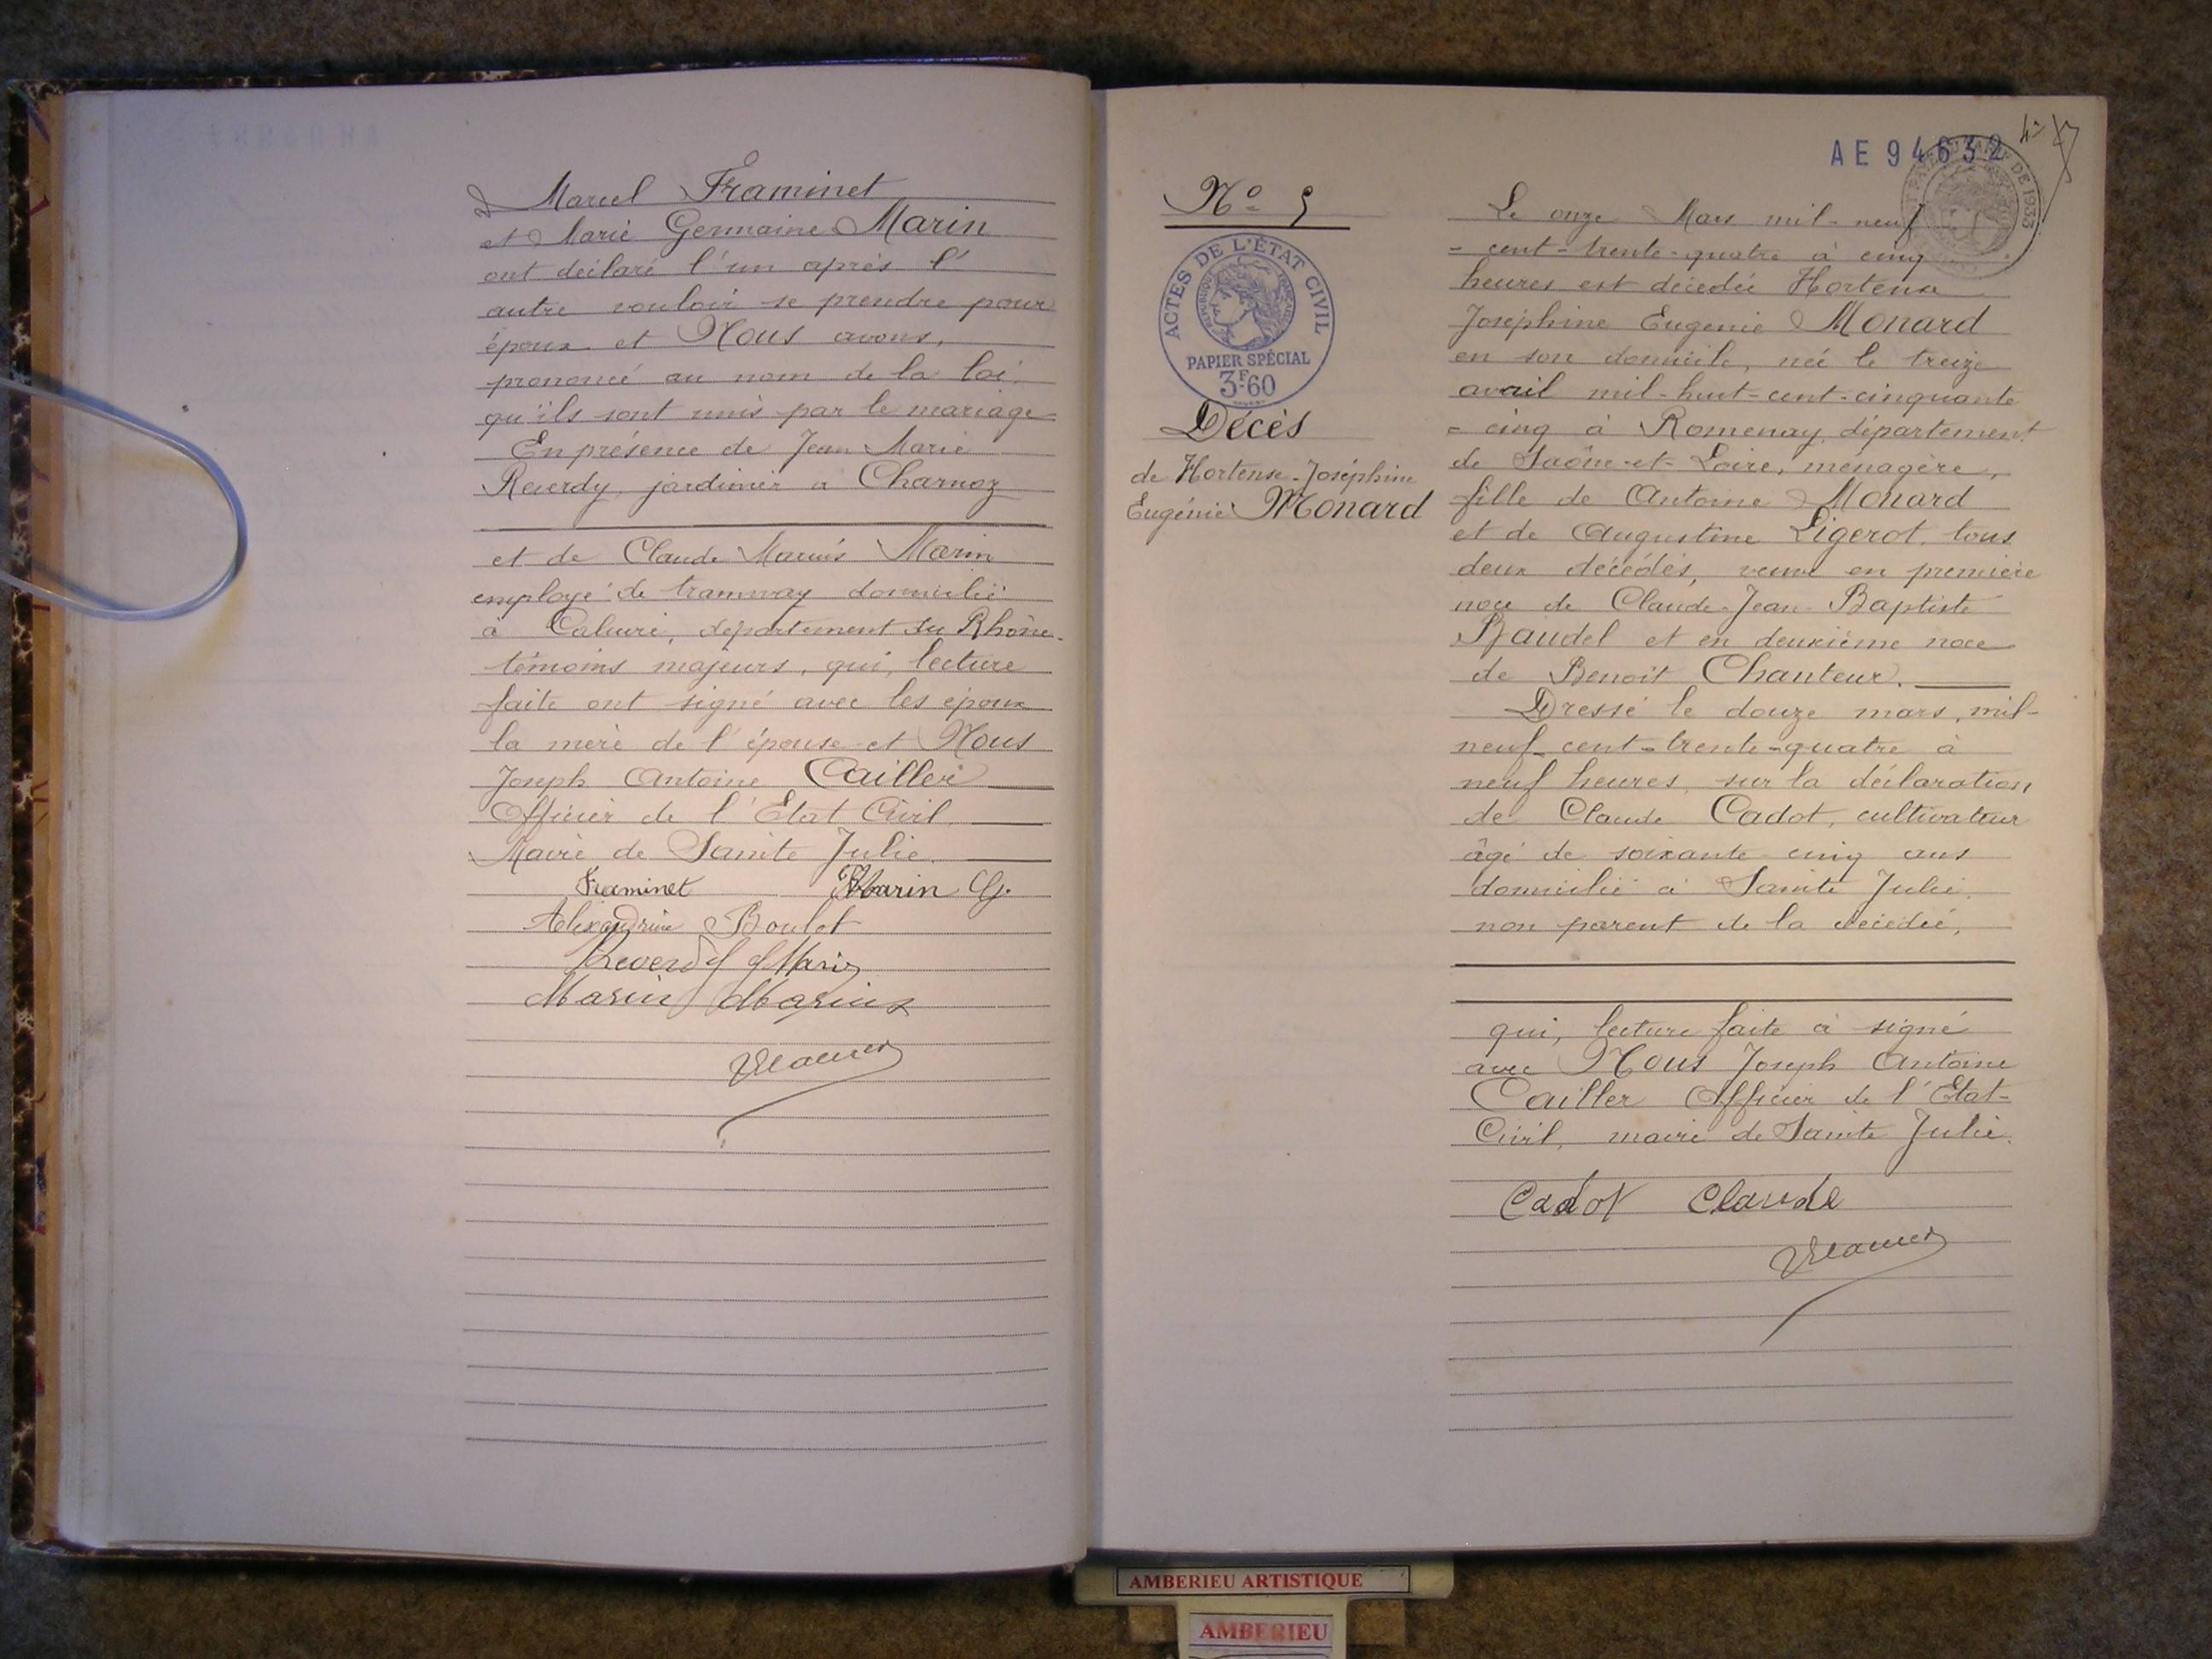 Marcel Framinet
et Marie Germaine Marin
ont déclaré l'un après l'
autre vouloir se prendre pour
époux et Nous avons,
prononcé au nom de la loi
qu'ils sont unis par le mariage
En présence de Jean Marie
Reverdy, jardinier à Charnoz
et de Claude Marius Marin
employé de tramway domicilié
à Caluire, département du Rhône.
témoins majeurs, qui, lecture
faite ont signé avec les époux
la mère de l'épouse et Nous
Joseph Antoine Cailler
Officier de l'Etat Civil
Maire de Sainte Julie.
Framinet Marin G.
Alexandrine Boulot
Reverdy J Marie
Marin Marius
AE 94632
N° 5
ACTES DE L'ÉTAT CIVIL
RÉPUBLIQUE FRANÇAISE
PAPIER SPÉCIAL
3F.60
Décès
de Hortense-Joséphine
Eugénie Monard
Le onze Mars mil-neuf
-cent-trente-quatre à cinq
heures est décédée Hortense
Joséphine Eugénie Monard
en son domicile, née le treize
avril mil-huit-cent-cinquante
-cinq à Romenay, département
de Saône-et-Loire, ménagère,
fille de Antoine Monard
et de Augustine Ligerot, tous
deux décédés, veuve en première
noce de Claude-Jean-Baptiste
Baudel et en deuxième noce
de Benoît Chanteur.
Dressé le douze mars, mil-
neuf-cent-trente-quatre à
neuf heures, sur la déclaration
de Claude Cadot, cultivateur
âgé de soixante cinq ans
domicilié à Sainte Julie
non parent de la décédée,
qui, lecture faite à signé
avec Nous Joseph Antoine
Cailler Officier de l'Etat-
Civil, maire de Sainte Julie.
Cadot Claude
AMBERIEU ARTISTIQUE
AMBERIEU